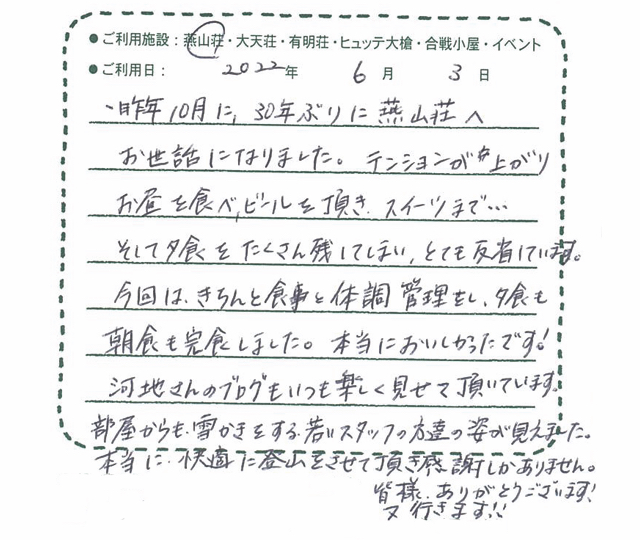 ●ご利用施設：燕山荘・大天荘・有明荘・ヒュッテ大槍・合戦小屋・イベント
●ご利用日： 2022年 6月 3日
一昨年10月に、30年ぶりに燕山荘へ
お世話になりました。テンションが上がり
お昼を食べ、ビールを頂き、スイーツまで…
そして夕食をたくさん残してしまい、とても反省しています。
今回は、きちんと食事と体調管理をし、夕食も
朝食も完食しました。本当においしかったです!
河地さんのブログもいつも楽しく見せて頂いています。
部屋からも、雪かきをする若いスタッフの方達の姿が見えました。
本当に、快適に登山をさせて頂き感謝しかありません。
皆様、ありがとうございます!
又行きます!!